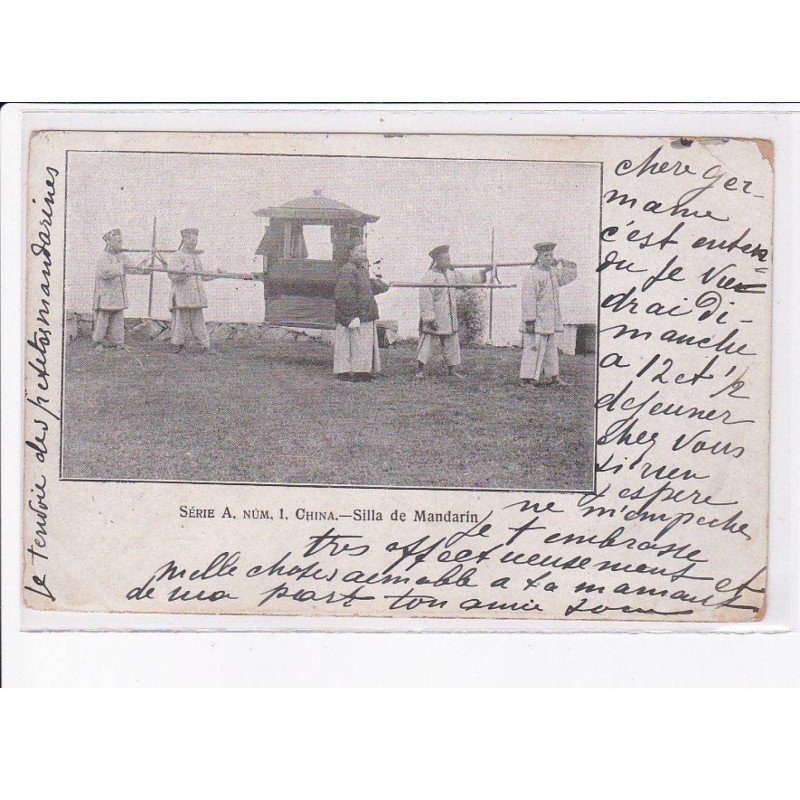 chere Ger-
maine
c'est enten
du je vien
drai Di-
manche
a 12 et ½
dejeuner
chez vous
si rien
j'espere
ne m'empeche
Je t embrasse
tres affectueusement et
Mille choses aimable a ta maman
de ma part ton amie
je tenvoie des petits mandarines
SÉRIE A, NÚM. 1. CHINA.—Silla de Mandarín